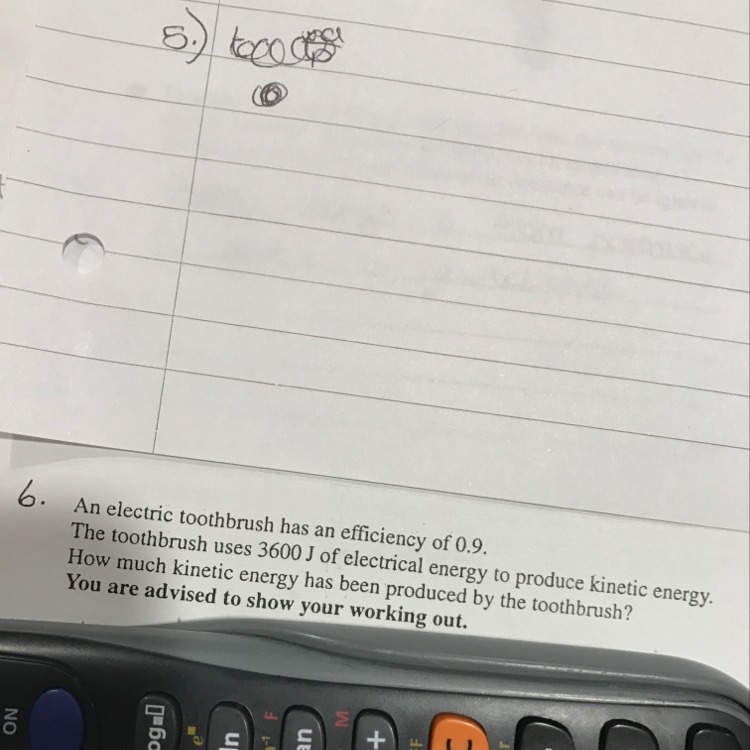 5.)
6. An electric toothbrush has an efficiency of 0.9.
The toothbrush uses 3600 J of electrical energy to produce kinetic energy.
How much kinetic energy has been produced by the toothbrush?
You are advised to show your working out.
ON
log
ln
F
M
+